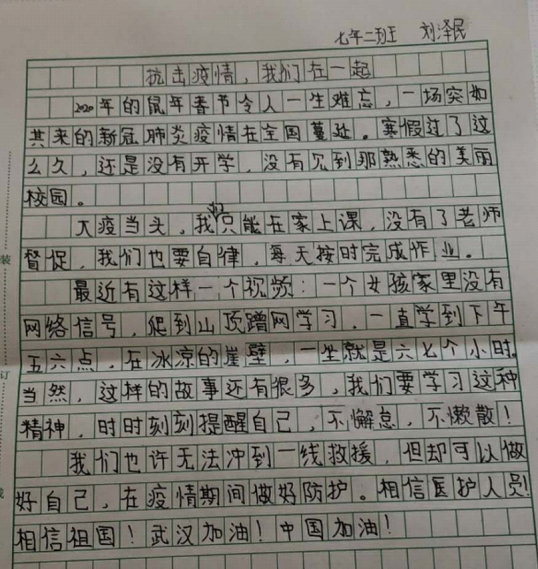 七年二班 刘泽民
抗击疫情，我们在一起
2020年的鼠年春节令人一生难忘，一场突如
其来的新冠肺炎疫情在全国蔓延。寒假过了这
么久，还是没有开学，没有见到那熟悉的美丽
校园。
大疫当头，我们只能在家上课，没有了老师
督促，我们也要自律，每天按时完成作业。
最近有这样一个视频：一个女孩家里没有
网络信号，爬到山顶蹭网学习，一直学到下午
五六点，在冰凉的崖壁，一坐就是六七个小时。
当然，这样的故事还有很多，我们要学习这种
精神，时时刻刻提醒自己，不懈怠，不懒散！
我们也许无法冲到一线救援，但却可以做
好自己，在疫情期间做好防护。相信医护人员！
相信祖国！武汉加油！中国加油！
装
订